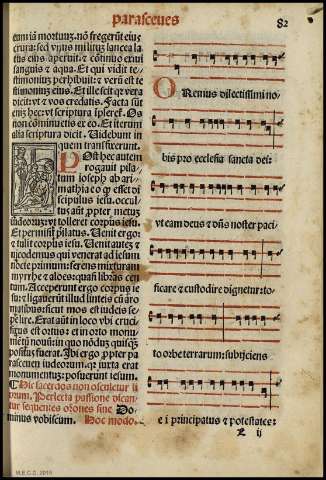 parasceues
82
eum iã mortuuz: nõ fregerũt eius
crura: sed vnus militũz lancea la
tus eius aperuit: ⁊ cõtinuo exiui
sanguis ⁊ aqua. Et qui vidit te/
stimoniuz perhibuit: ⁊ verũ est te
stimoniuz eius. Et ille scit qr vera
dicit: vt ⁊ vos credatis. Facta sũt
eniz hec: vt scriptura ĩpleret̃. Os
non cõminuetis ex eo. Et iterum
alia scriptura dicit. Videbunt in
quem transfixerunt.
Post hec autem
rogauit pila/
tum ioseph ab ari/
mathia eo q̃ esset di
scipulus iesu. occul/
tus aũt ppter metuz
iudeoruz: vt tolleret corpus iesu.
Et permisit pilatus. Uenit ergo:
⁊ tulit corpus iesu. Uenit autez ⁊
nicodemus qui venerat ad iesum
nocte primum: ferens mixturam
myrrhe ⁊ aloes: quasi libras cen
tum. Acceperunt ergo corpus ie
su: ⁊ ligauerũt illud linteis cũ aro
matibus: sicut mos est iudeis se/
pelire. Erat aũt in loco vbi cruci/
fixus est ortus: ⁊ in orto monu/
mẽtũ nouũ: in quo nõduz quisqz
positus fuerat. Ibi ergo ppter pa
rasceuen iudeorum: qr iuxta erat
monumentuz: posuerunt iesum.
Hic sacerdos non osculetur li
brum. Perlecta passione dican/
tur sequentes orones sine Do/
minus vobiscum. Hoc modo.
Oremus dilectissimi no/
bis pro ecclesia sancta dei:
vt eam deus ⁊ dñs noster paci/
ficare ⁊ custodire dignetur: to/
to orbe terrarum: subijciens
ei principatus ⁊ potestates:
ij
M.E.C.D. 2015